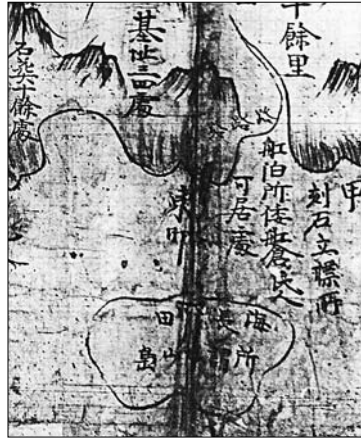 十餘里
甲
刻石立標所
舡泊所倭舡倉
可居處
基址三四處
東
石葬十餘處
海長竹田
所謂于山島